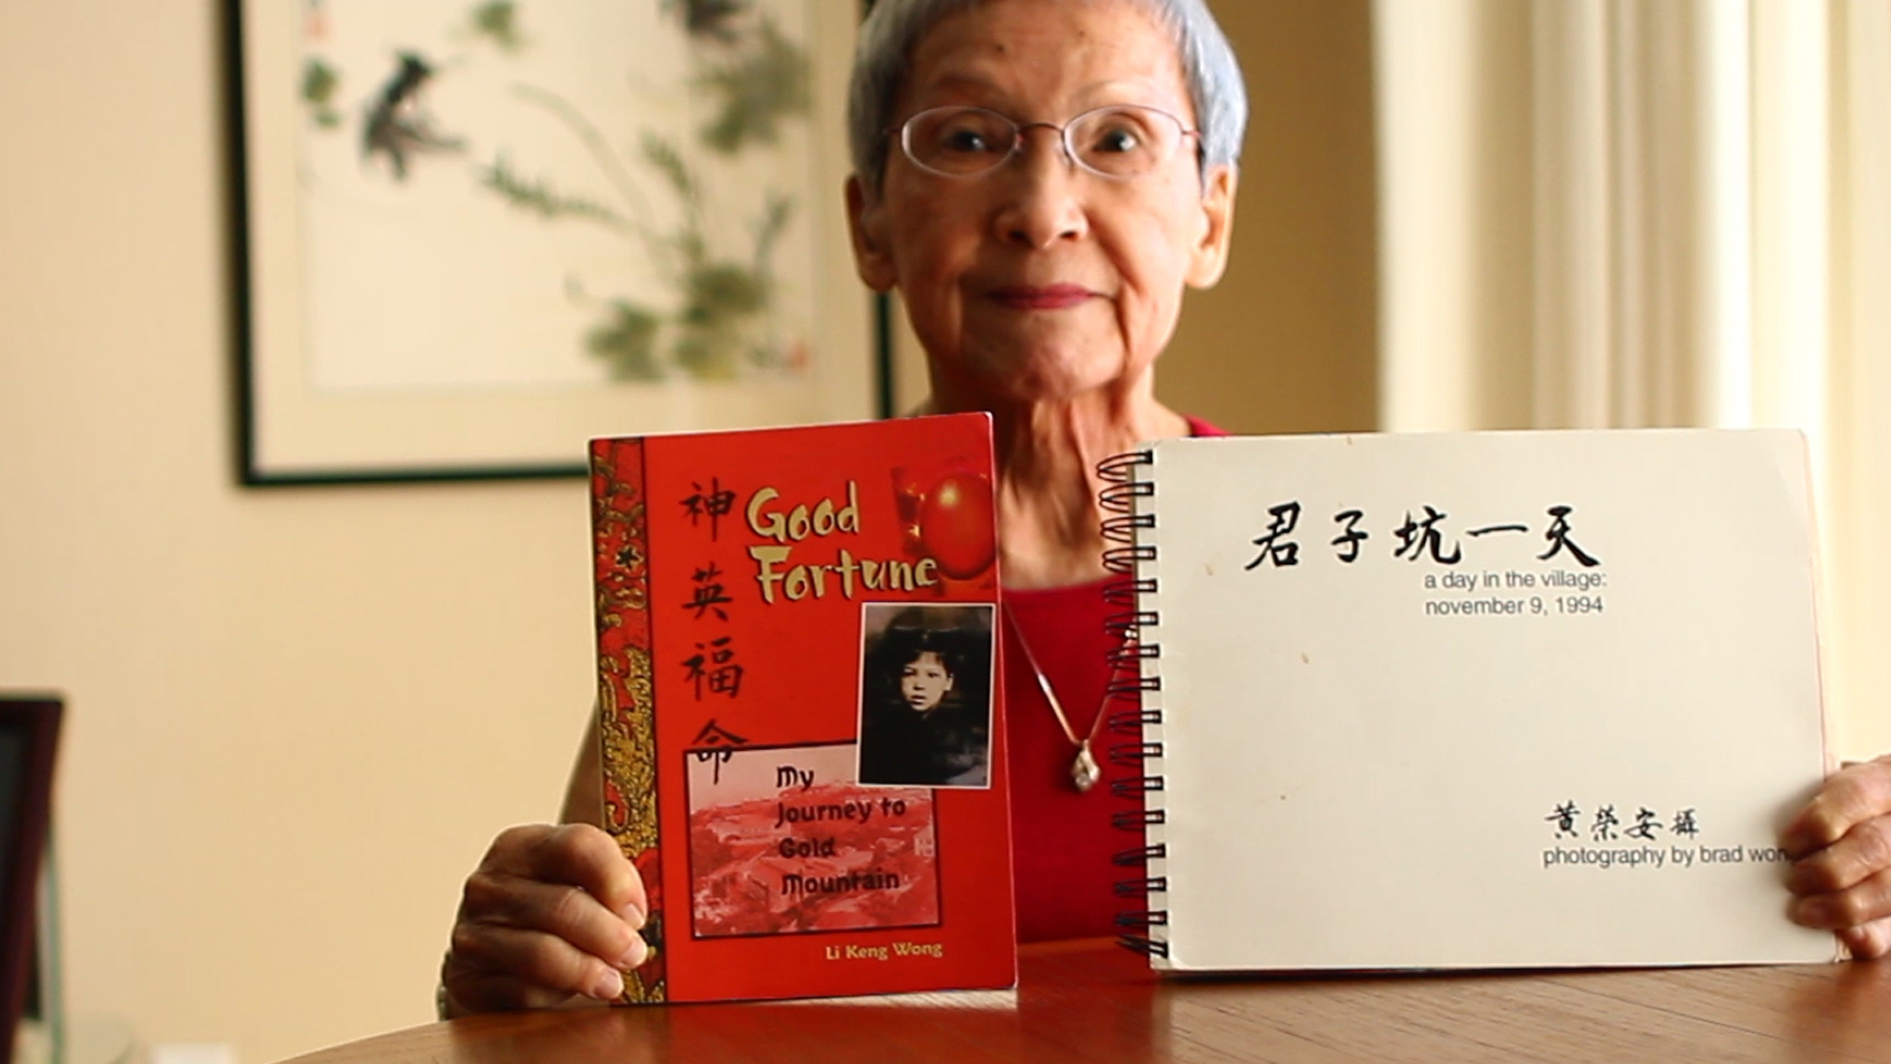 神英福命
Good
Fortune
My
Journey to
Gold
Mountain
Li Keng Wong
君子坑一天
a day in the village:
november 9, 1994
黃榮安攝
photography by brad won